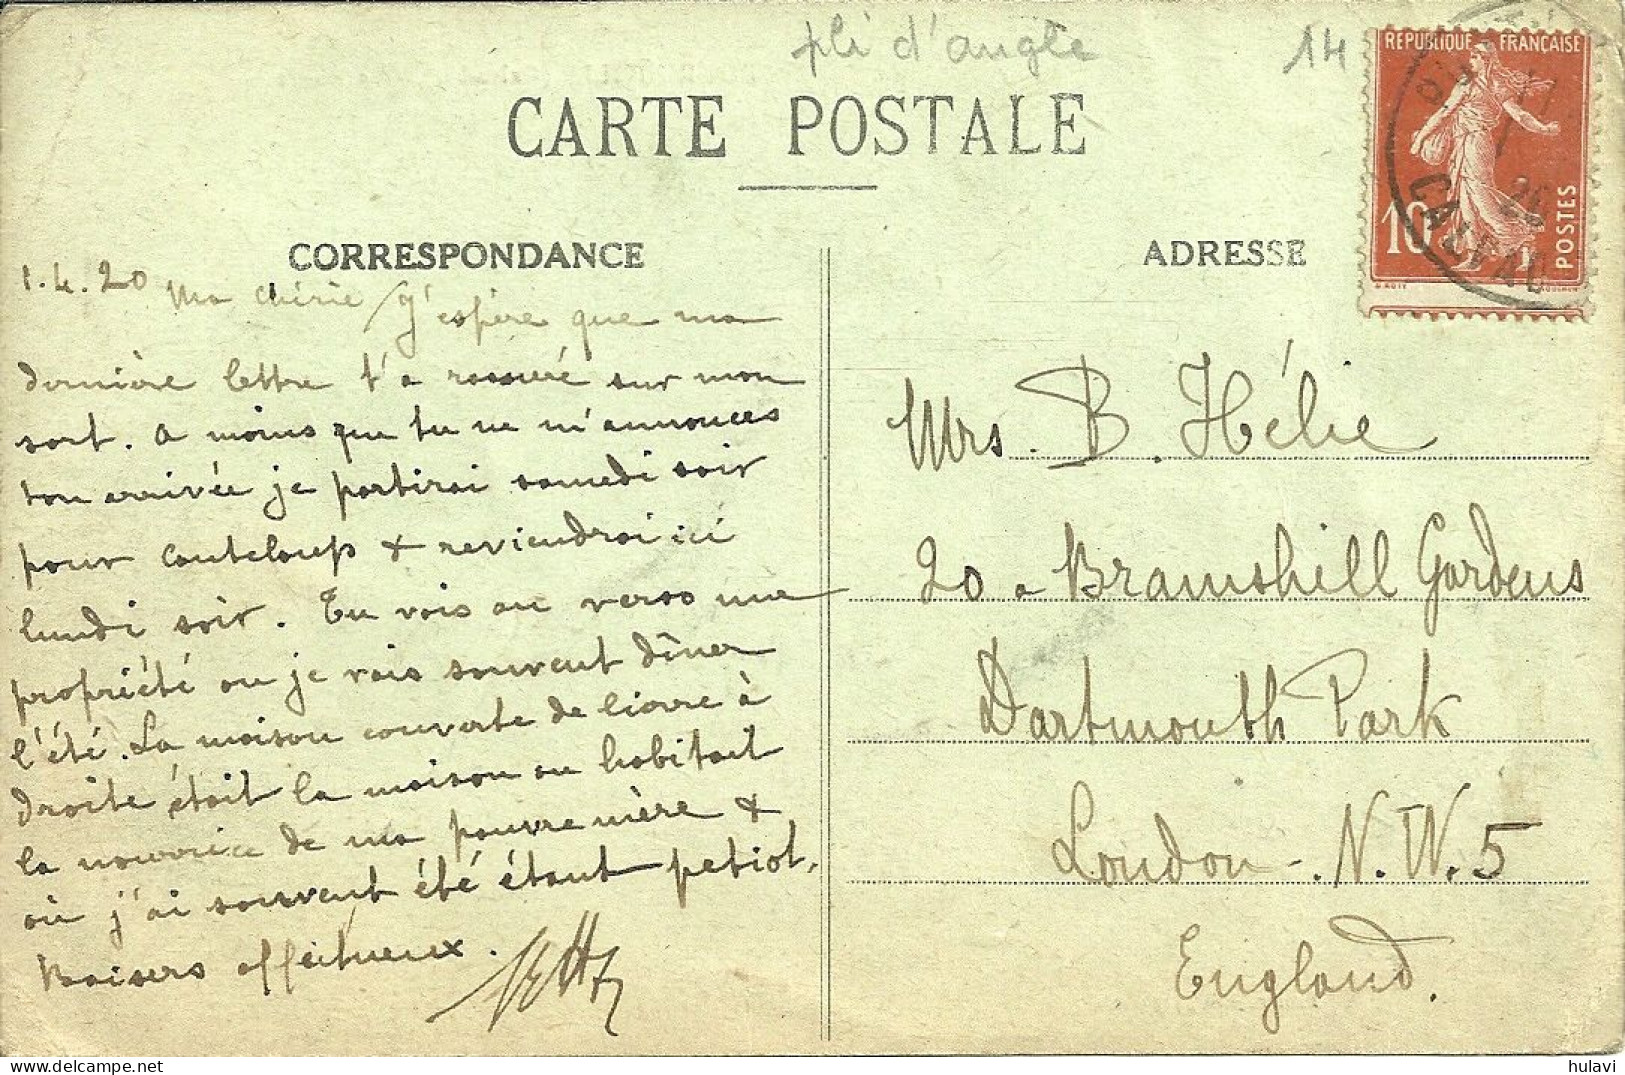 pli d'angle
14
REPUBLIQUE FRANÇAISE
10
POSTES
CALVADOS
CARTE POSTALE
CORRESPONDANCE
ADRESSE
1.4.20 Ma chérie J'espère que ma
dernière lettre t'a rassuré sur mon
sort. A moins que tu ne m'annonces
ton arrivée je partirai samedi soir
pour Canteloup & reviendrai ici
lundi soir. Tu vois au verso une
propriété ou je vais souvent dîner
l'été. La maison couverte de lierre à
droite était la maison ou habitait
la nourrice de ma pauvre mère &
où j'ai souvent été étant petiot.
Baisers affectueux.
Mrs. B. Hélie
20 a Bramshill Gardens
Dartmouth Park
London - N.W.5
England.
hulavi